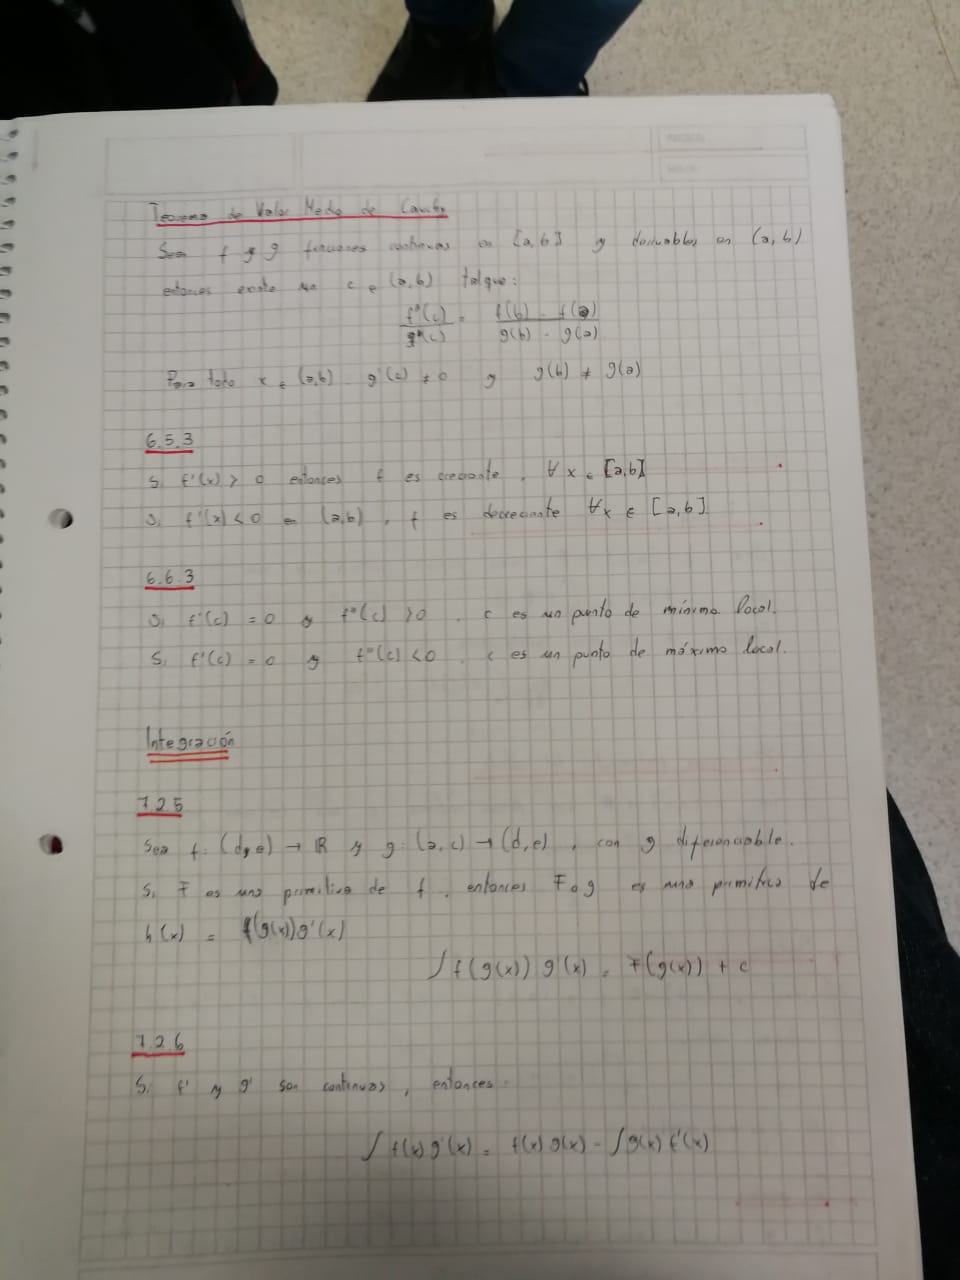 Teorema de Valor Medio de Cauchy
Sean f y g funciones continuas en [a,b] y derivables en (a,b)
entonces existe un c ∈ (a,b) tal que:
f'(c) / g'(c) = f(b) - f(a) / g(b) - g(a)
Para todo x ∈ (a,b) g'(c) ≠ 0 y g(b) ≠ g(a)
6.5.3
Si f'(x) > 0 entonces f es creciente, ∀ x ∈ [a,b]
Si f'(x) < 0 en (a,b), f es decreciente ∀x ∈ [a,b]
6.6.3
Si f'(c) = 0 y f''(c) > 0, c es un punto de mínimo local.
Si f'(c) = 0 y f''(c) < 0, c es un punto de máximo local.
Integración
7.2.5
Sea f: (d,e) → ℝ y g: (a,c) → (d,e), con g diferenciable.
Si F es una primitiva de f, entonces F∘g es una primitiva de
h(x) = f(g(x))g'(x)
∫ f(g(x)) g'(x) = F(g(x)) + c
7.2.6
Si f' y g' son continuas, entonces:
∫ f(x) g'(x) = f(x) g(x) - ∫ g(x) f'(x)